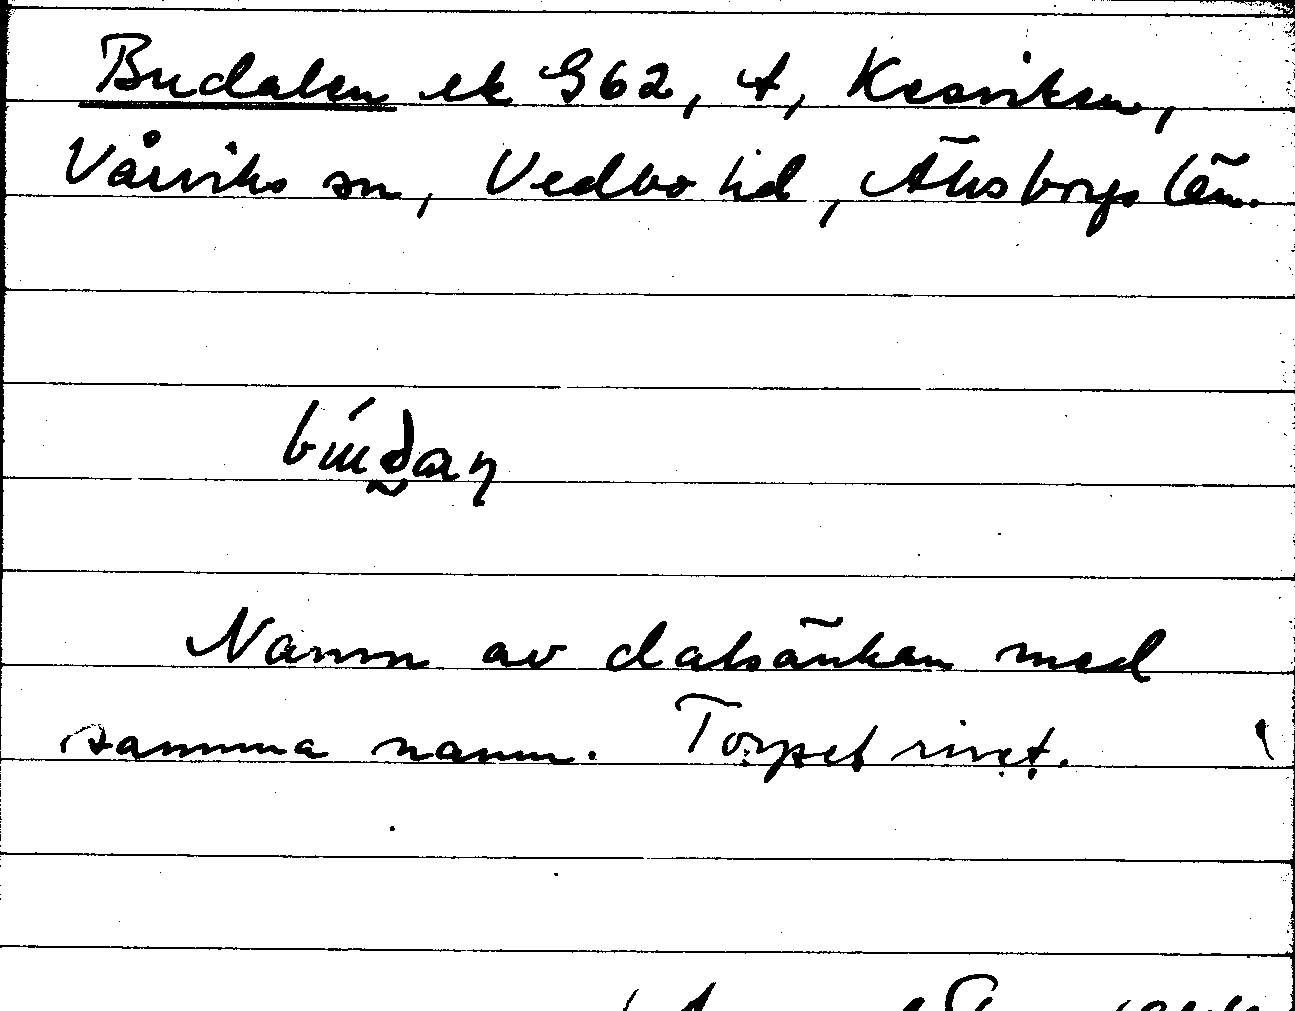 Budalen ek 962, t, Kesviksen,
Vårviks sn, Vedbo hd, Älvsborgs län.
Namn av dalsänkan med
samma namn. Torpet rivet.